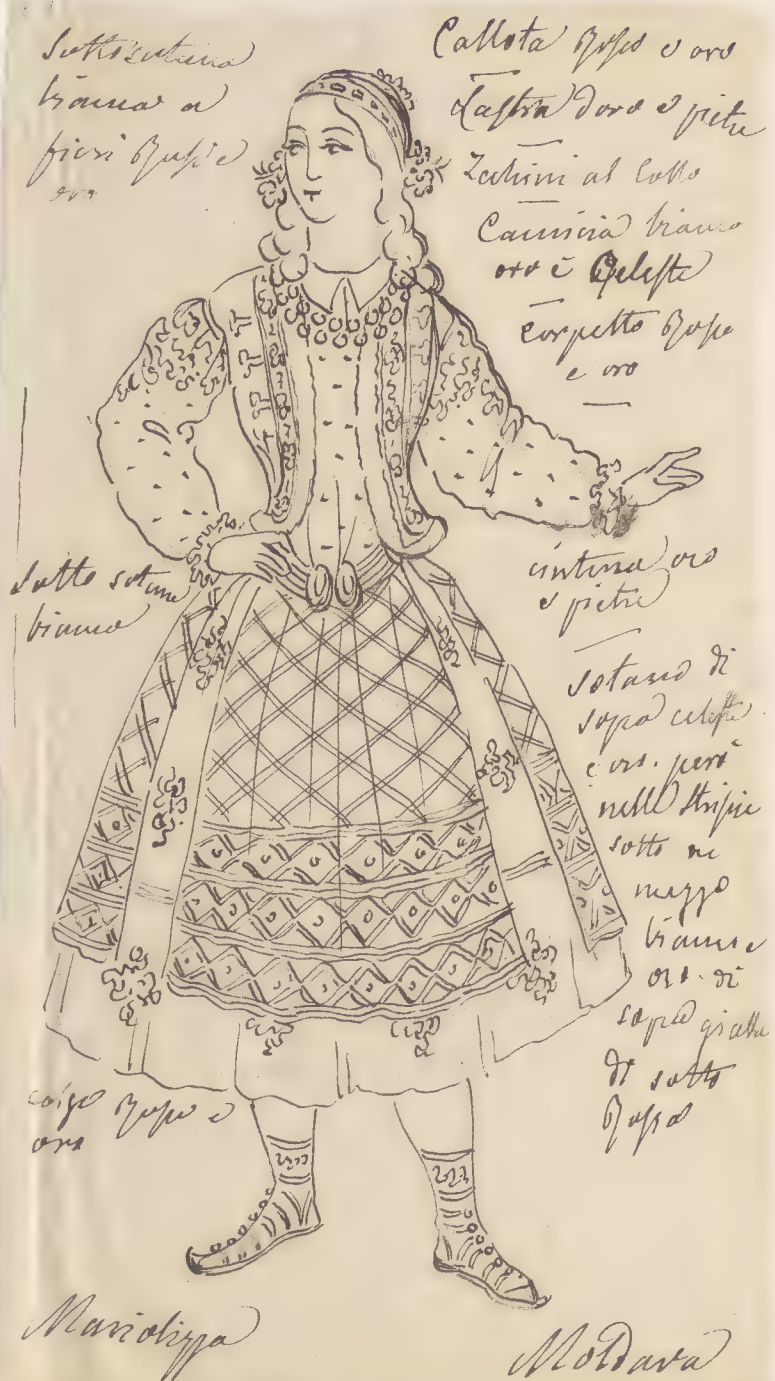 Sottosutana
bianca a
fiori Rossi e
oro
Callota Rosso e oro
Lastra d'oro e pietre
Zechini al Collo
Camicia bianco
oro e Celeste
Corpetto Rosso
e oro
Sotto sotana
bianca
cintura oro
e pietre
sotana di
sopra celeste
e oro. però
nelle striscie
sotto ne
mezzo
bianca e
oro. di
sopra gialla
di sotto
Rossa
calze Rosso e
oro
Mariolizza
Moldava